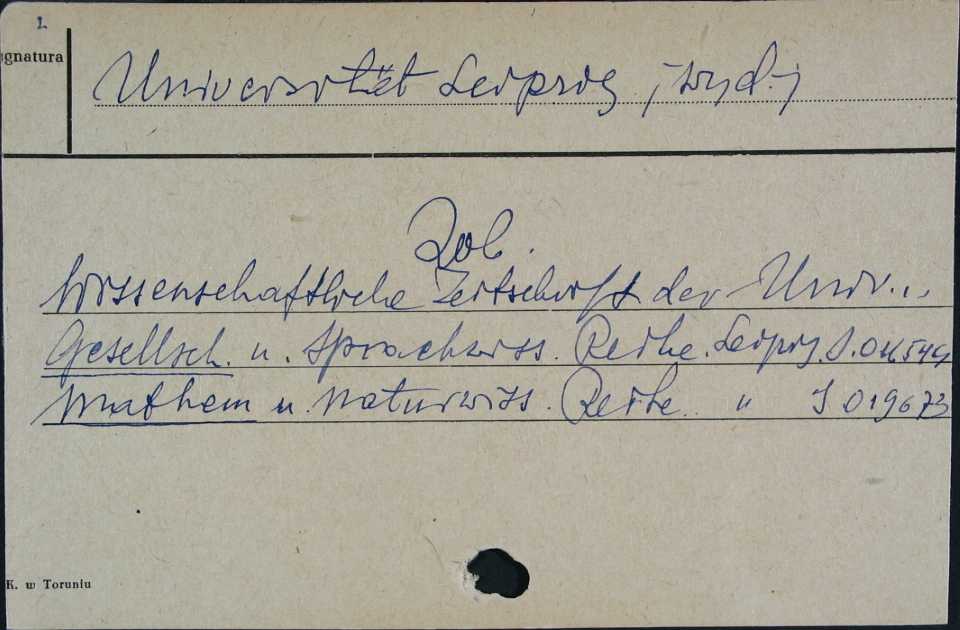 1.
ygnatura
Universität Leipzig /wyd./
Zob.
Wissenschaftliche Zeitschrift der Univ...
Gesellsch. u. Sprachwiss. Reihe. Leipzig
Mathem u. Naturwiss. Reihe. " J 019673
K. w Toruniu